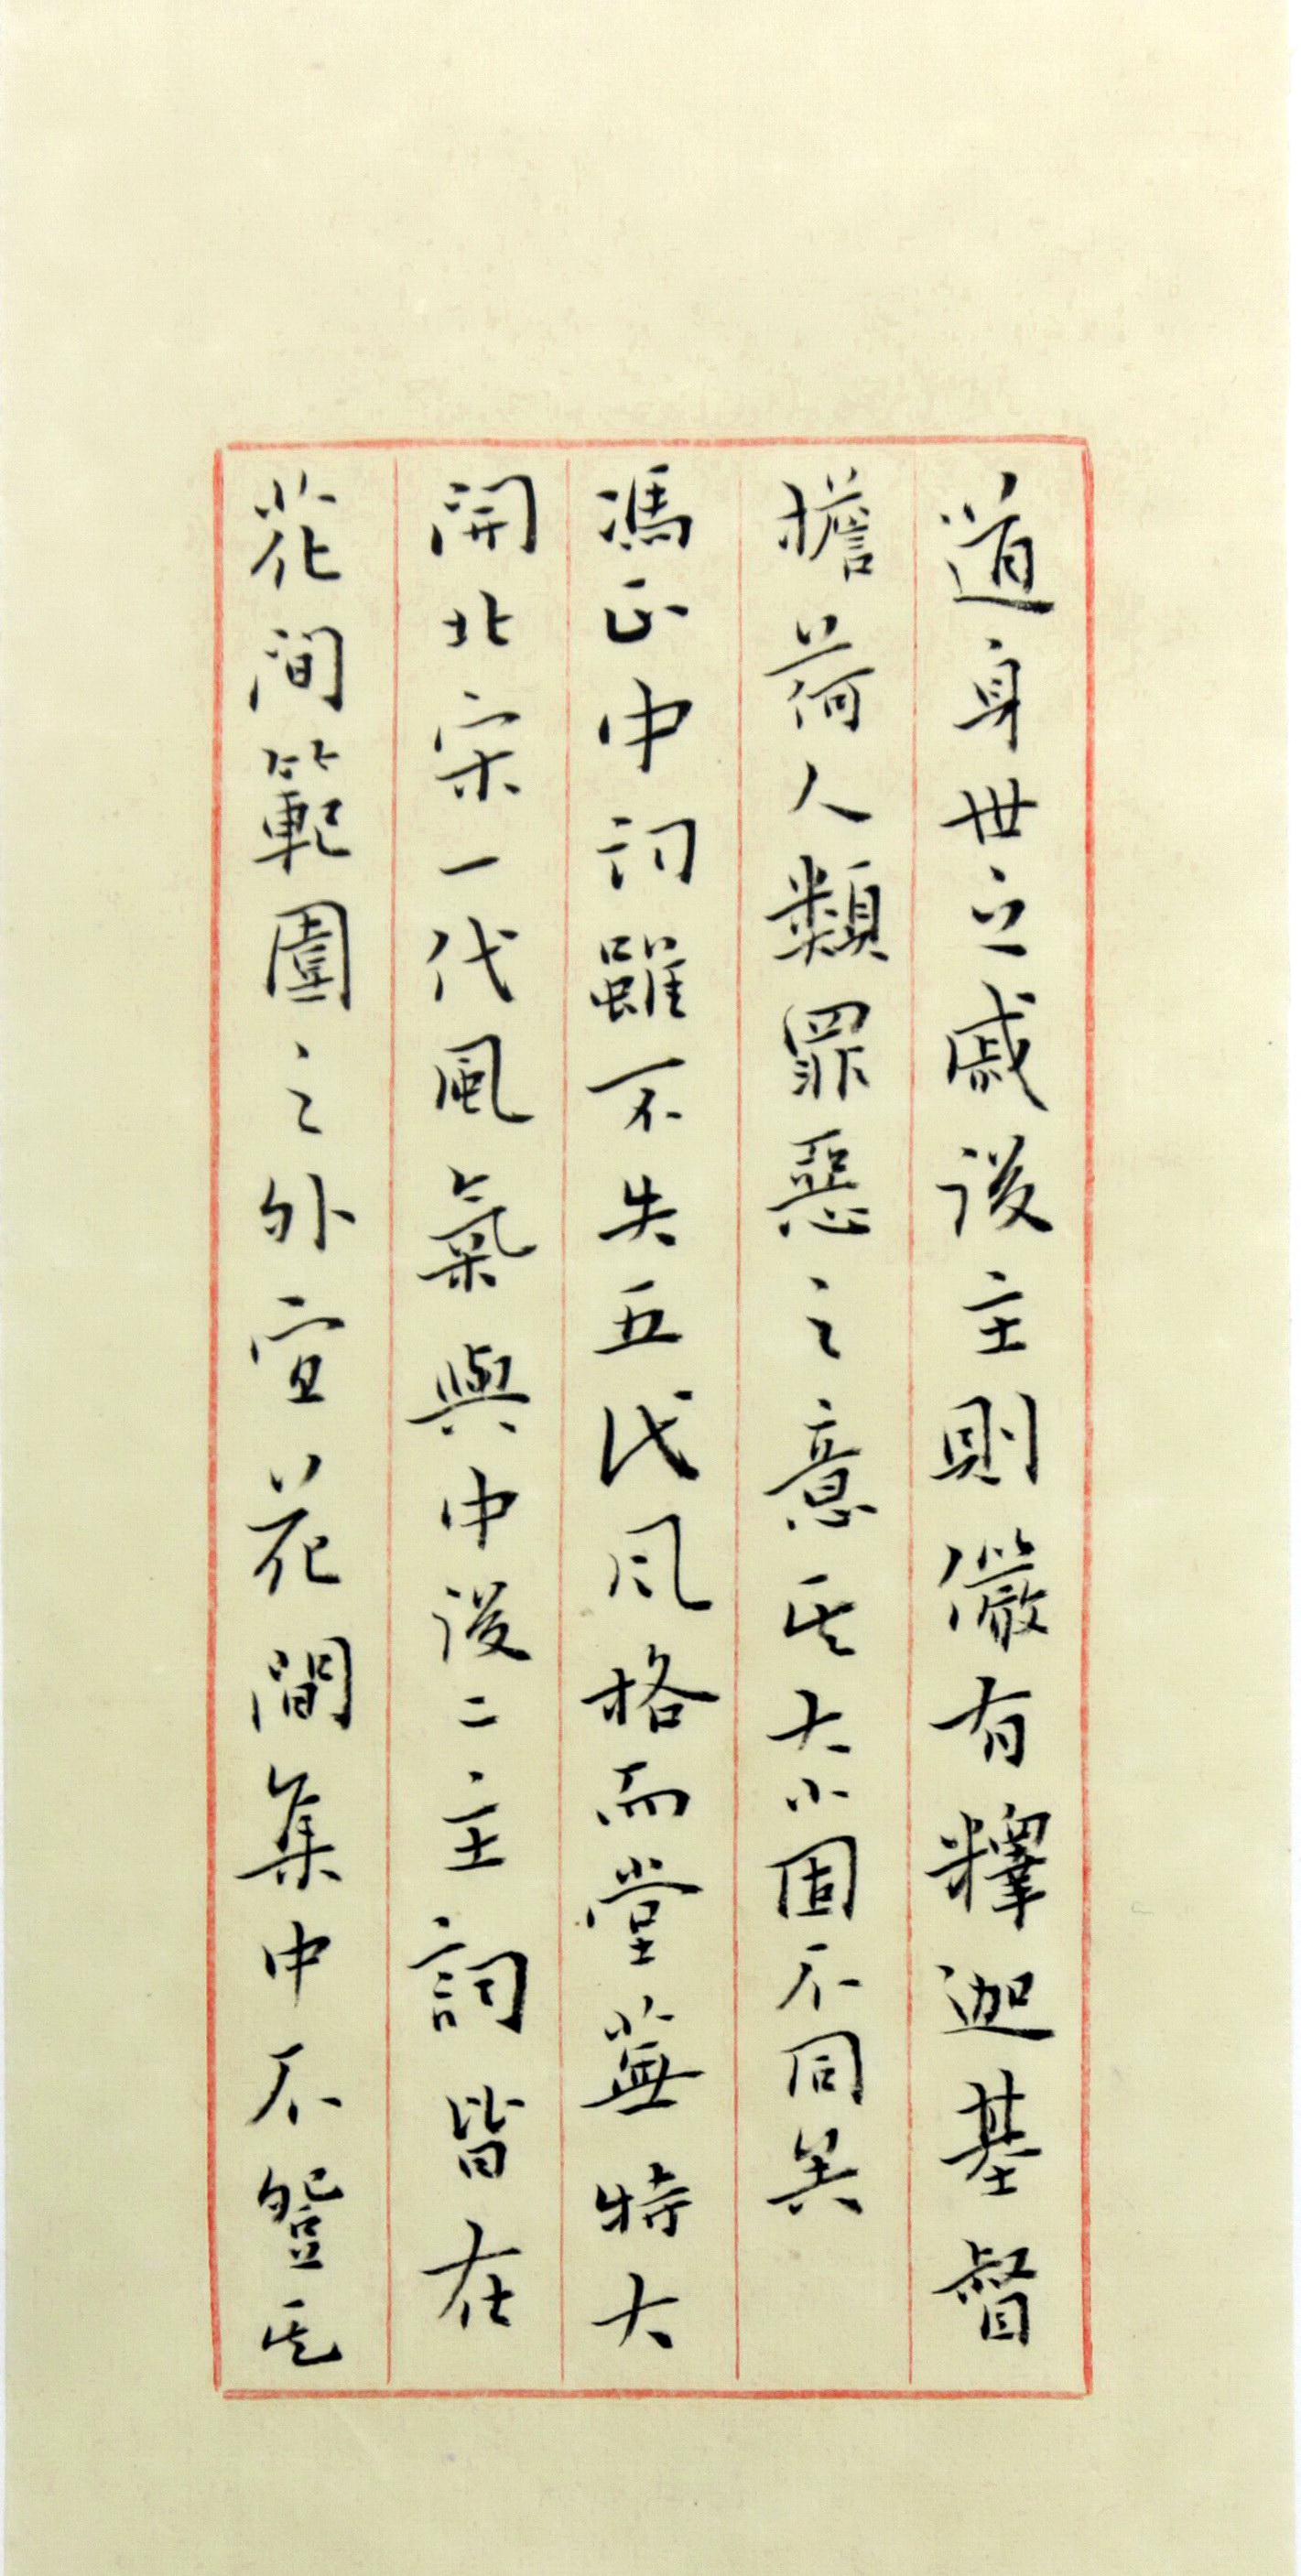 道身世之戚後主則儼有釋迦基督
擔荷人類罪惡之意其大小固不同矣
馮正中詞雖不失五代風格而堂廡特大
開北宋一代風氣與中後二主詞皆在
花間範圍之外宜花間集中不登其